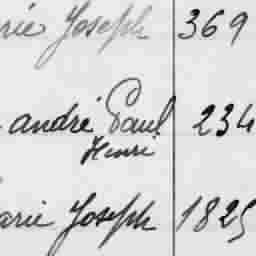 rie Joseph 369
andré Paul 234
Henri
arie Joseph 1825